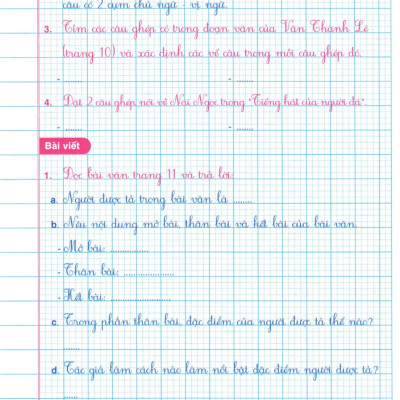 câu có 2 cụm chủ ngữ - vị ngữ.
3. Tìm các câu ghép có trong đoạn văn của Văn Thành Lê
(trang 10) và xác định các vế câu trong mỗi câu ghép đó.
- ...... - ......
4. Đặt 2 câu ghép nói về Nai Ngọc trong "Tiếng hát của người đá".
- ...... - ......
Bài viết
1. Đọc bài văn trang 11 và trả lời:
a. Người được tả trong bài văn là ......
b. Nêu nội dung mở bài, thân bài và kết bài của bài văn.
- Mở bài: ............
- Thân bài: ................
- Kết bài: ..................
c. Trong phần thân bài, đặc điểm của người được tả thế nào?
......
d. Tác giả làm cách nào làm nổi bật đặc điểm người được tả?
.....